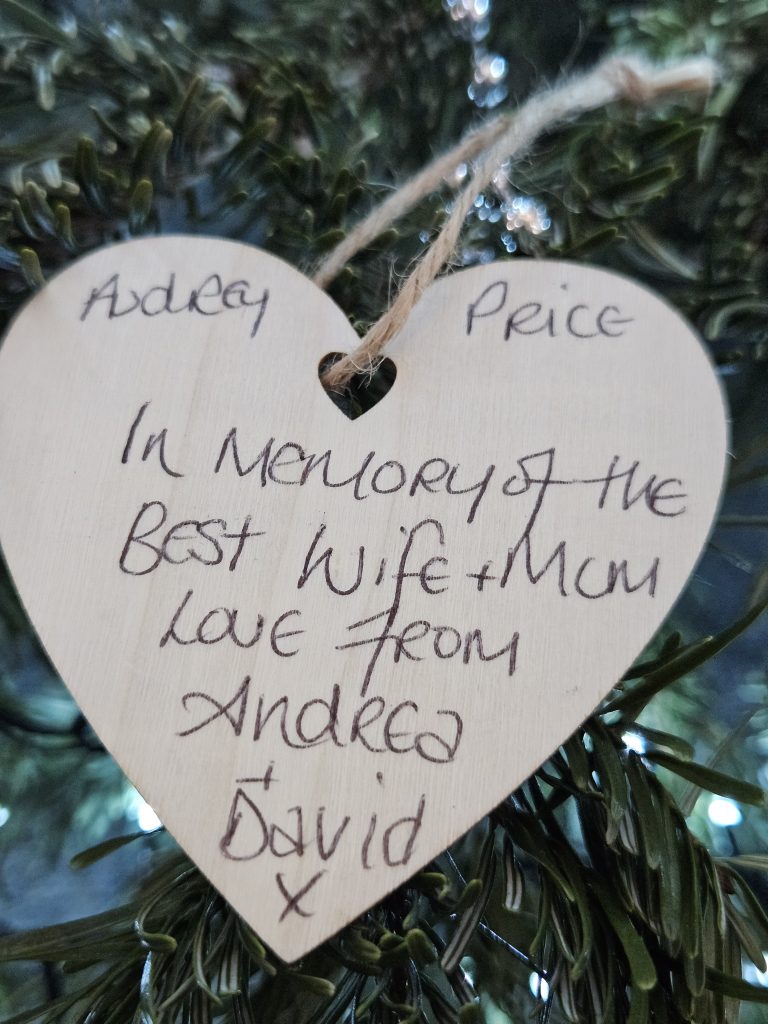 Audrey Price
In Memory of the
Best Wife + Mum
Love From
Andrea
+
David
x